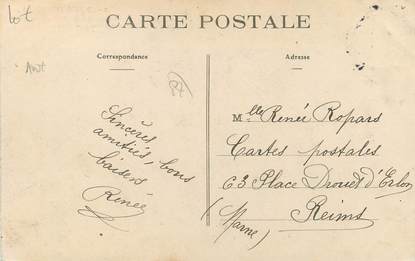 Lot
CARTE POSTALE
Correspondance
Adresse
Sincères
amitiés, bons
baisers
Renée
Mlle Renée Ropars
Cartes postales
63 Place Drouet d'Erlon
Reims
(Marne)